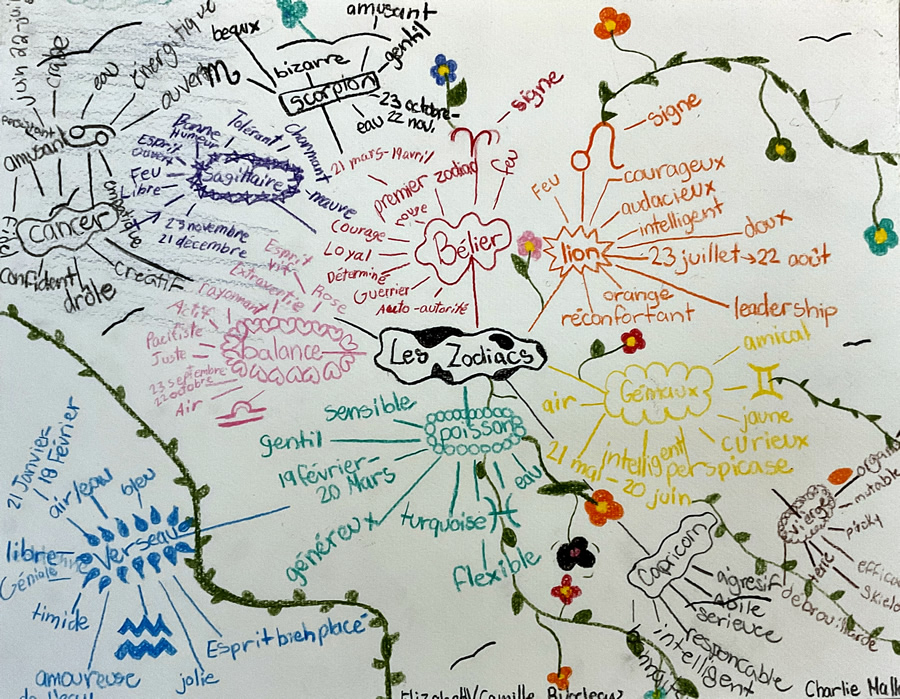 juin 22-jui
crabe
eau
énergétique
ouvert
amusant
cancer
confident
drôle
créatif
beaux
bizarre
amusant
gentil
scorpion
23 octobre-
22 nov.
eau
Bonne
Humeur
Tolérant
Charmant
Esprit
Ouvert
Feu
Libre
Sagittaire
mauve
23 novembre
21 décembre
signe
21 mars-19avril
premier zodiac
Feu
Courage
Loyal
Déterminé
Guerrier
Auto-autorité
Bélier
signe
Feu
courageux
audacieux
intelligent
doux
lion
23 juillet→22 août
orange
réconfortant
leadership
Esprit
vif
Extravertie
rayonnant
Rose
Actif
Pacifiste
Juste
balance
23 septembre
22 octobre
Air
Les Zodiacs
amical
Gémaux
air
jaune
curieux
intelligent
perspicase
21 mai-20 juin
sensible
gentil
poisson
19 février-
20 Mars
eau
généreux
turquoise
flexible
21 Janvier-
18 Février
air/eau
bleu
Verseau
libre
Géniale
timide
Esprit bien placé
amoureuse
jolie
Capricorn
agile
serieuce
responcable
intelligent
Vierge
mutable
Charlie